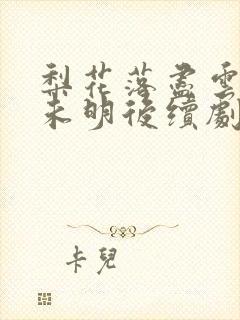 梨花落盡雲
未明後續劇
卡兒